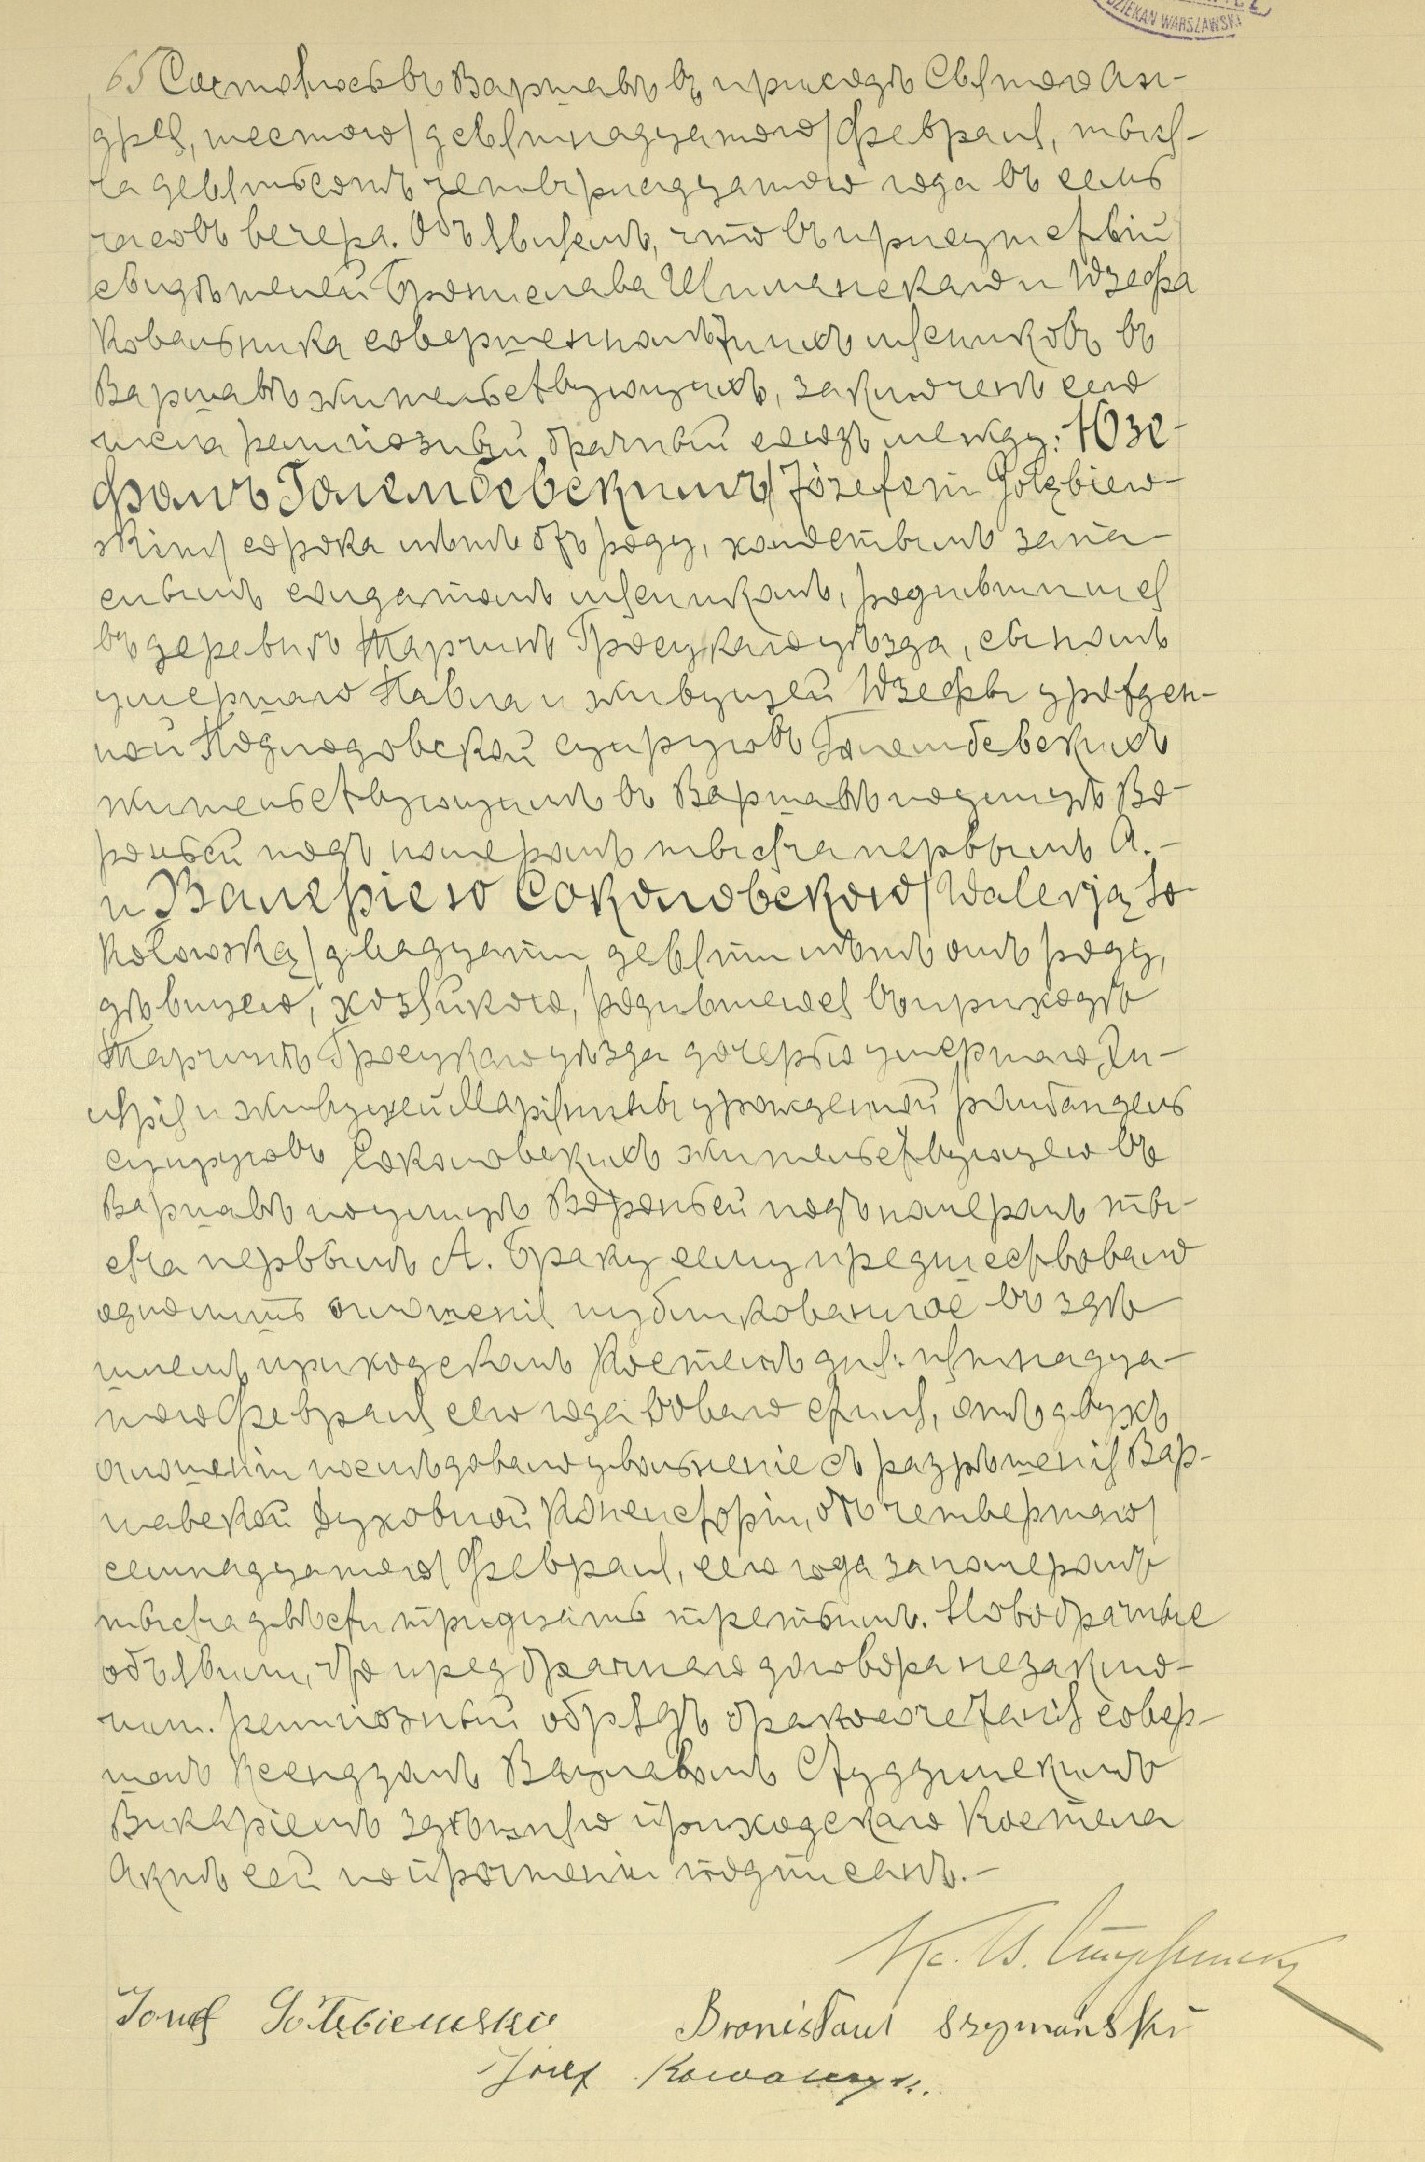 DZIEKAN WARSZAWSKI
65 Состоялось въ Варшавѣ въ приходѣ Святого Ан-
дрея, шестого/девятнадцатого/февраля, тыся-
ча девятьсотъ четырнадцатого года въ семь
часовъ вечера. Объявляемъ, что въ присутствіи
свидѣтелей Бронислава Шиманскаго и Юзефа
Ковальчика совершеннолѣтнихъ мясниковъ въ
Варшавѣ жительствующихъ, заключенъ сего
числа религіозный брачный союзъ между: Юзе-
фомъ Голембевскимъ/Józefem Gołębiew-
skim/ сорока лѣтъ отъ роду, холостымъ запа-
снымъ солдатомъ мясникомъ, родившимся
въ деревнѣ Тарчинѣ Гроецкаго уѣзда, сыномъ
умершаго Павла и живущей Юзефы урожден-
ной супруговъ Голембевскихъ
жительствующимъ въ Варшавѣ по улицѣ Во-
роньей подъ номеромъ тысяча первымъ А.-
и Валеріею Соколовскою/Walerją So-
kołowską/двадцати девяти лѣтъ отъ роду,
дѣвицею, хозяйкою, родившеюся въ приходѣ
Тарчинѣ Гроецкаго уѣзда дочерью умершаго
и живущей Маріанны урожденной
супруговъ Соколовскихъ жительствующею въ
Варшавѣ по улицѣ Вороньей подъ номеромъ ты-
сяча первымъ А. Браку сему предшествовало
одно лишь оглашеніе публикованное въ здѣ-
шнемъ приходскомъ Костелѣ дня: пятнадца-
того февраля сего года новаго стиля, отъ двухъ
оглашеніи послѣдовало увольненіе съ разрѣшенія Вар-
шавской Духовной Консисторіи, отъ четвертаго/
семнадцатого/февраля, сего года за номеромъ
тысяча двѣсти тридцать третьимъ. Новобрачные
объявили, что предбрачнаго договора незаклю-
чили. Религіозный обрядъ бракосочетанія совер-
шонъ Ксендзомъ Вацлавомъ Студзинскимъ
Викаріемъ здѣшняго приходскаго Костела
Актъ сей по прочтеніи подписанъ.-
Józef Gołębiewski Bronisław Szymański
Józef Kowalczyk.